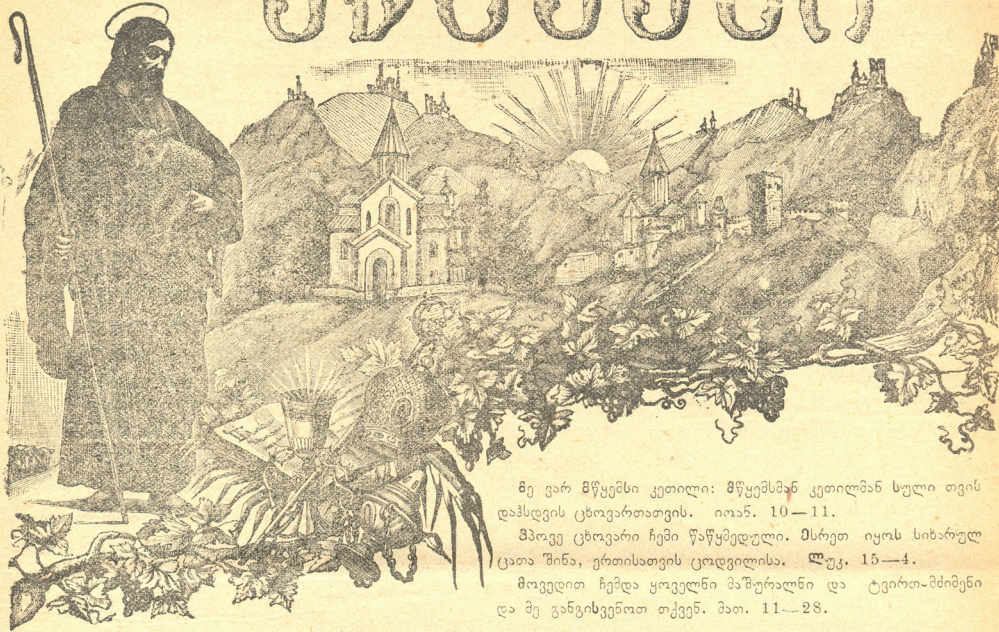 მე ვარ მწყემსი კეთილი: მწყემსმან კეთილმან სული თვის
დაჰსდვის ცხოვართათვის. იოან. 10—11.
ჰპოვე ცხოვარი ჩემი წაწყმედული. ესრეთ იყოს სიხარულ
ცათა შინა, ერთისათვის ცოდვილისა. ლუკ. 15—4.
მოვედით ჩემდა ყოველნი მაშურალნი და ტვირთ-მძიმენი
და მე განგისვენოთ თქვენ. მათ. 11—28.